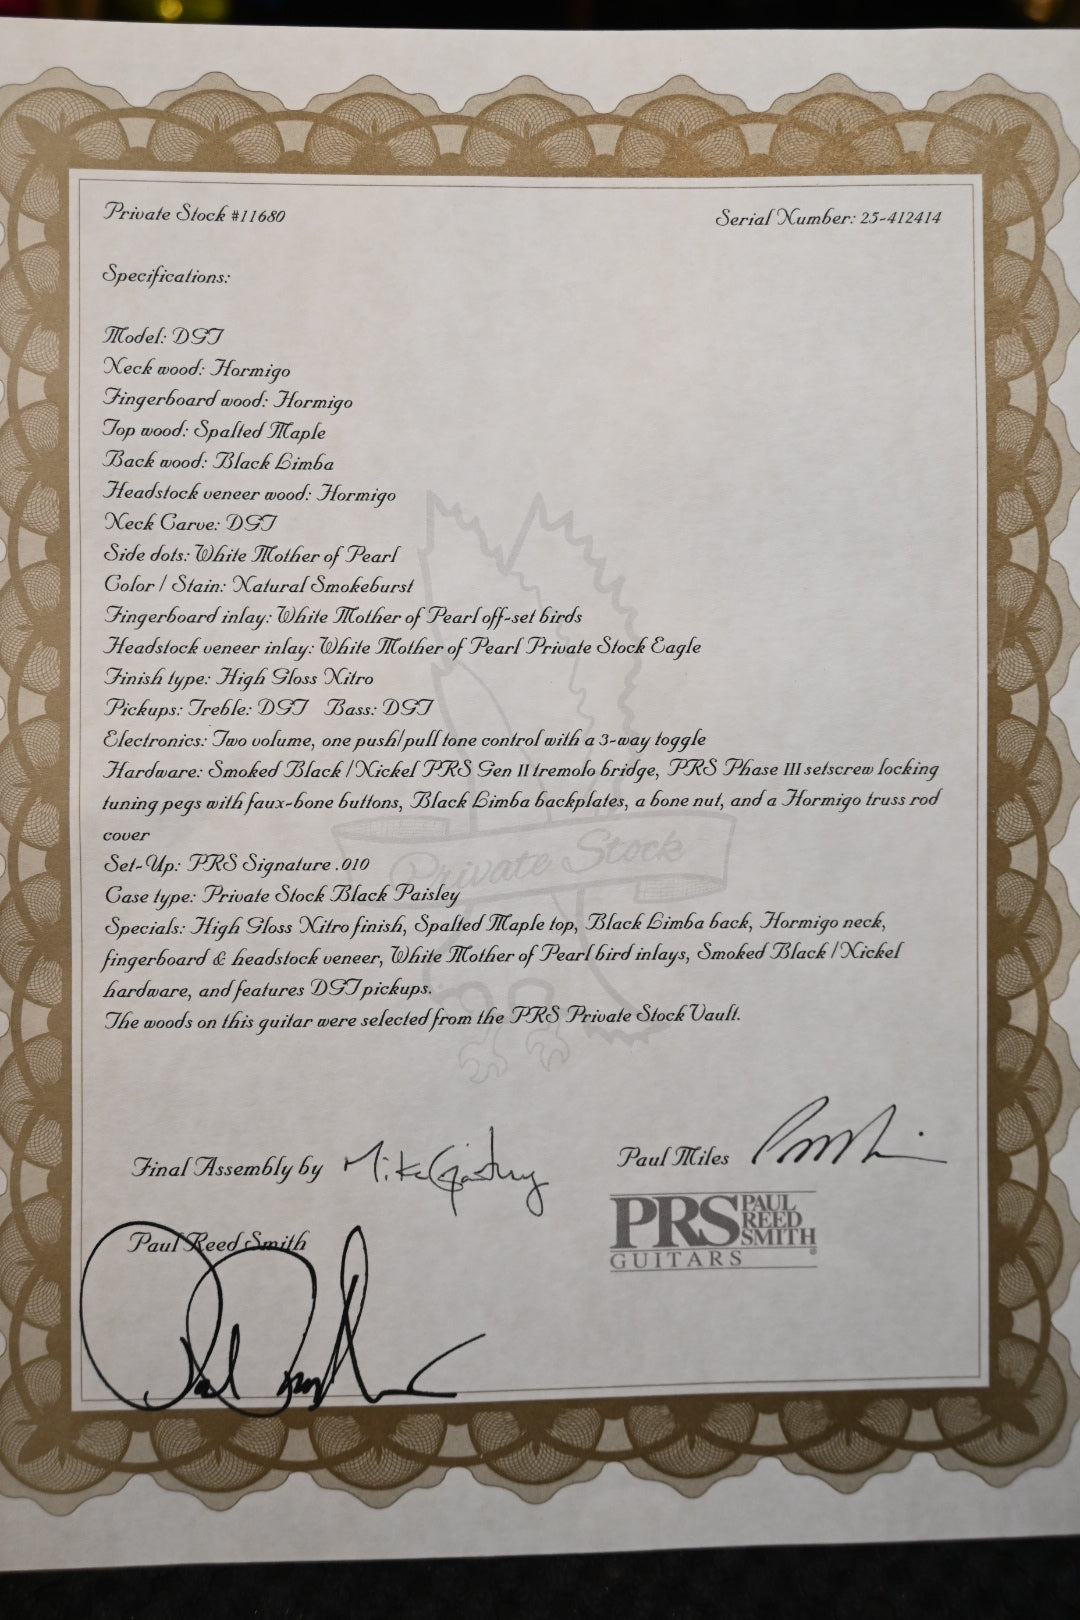 Private Stock #11680
Serial Number: 25-412414
Specifications:
Model: DGT
Neck wood: Hormigo
Fingerboard wood: Hormigo
Top wood: Spalted Maple
Back wood: Black Limba
Headstock veneer wood: Hormigo
Neck Carve: DGT
Side dots: White Mother of Pearl
Color / Stain: Natural Smokeburst
Fingerboard inlay: White Mother of Pearl off-set birds
Headstock veneer inlay: White Mother of Pearl Private Stock Eagle
Finish type: High Gloss Nitro
Pickups: Treble: DGT Bass: DGT
Electronics: Two volume, one push/pull tone control with a 3-way toggle
Hardware: Smoked Black / Nickel PRS Gen II tremolo bridge, PRS Phase III setscrew locking
tuning pegs with faux-bone buttons, Black Limba backplates, a bone nut, and a Hormigo truss rod
cover
Set-Up: PRS Signature .010
Case type: Private Stock Black Paisley
Specials: High Gloss Nitro finish, Spalted Maple top, Black Limba back, Hormigo neck,
fingerboard & headstock veneer, White Mother of Pearl bird inlays, Smoked Black / Nickel
hardware, and features DGT pickups.
The woods on this guitar were selected from the PRS Private Stock Vault.
Private Stock
Final Assembly by Mike
Paul Miles
Paul Reed Smith
PRS PAUL
REED
SMITH
GUITARS